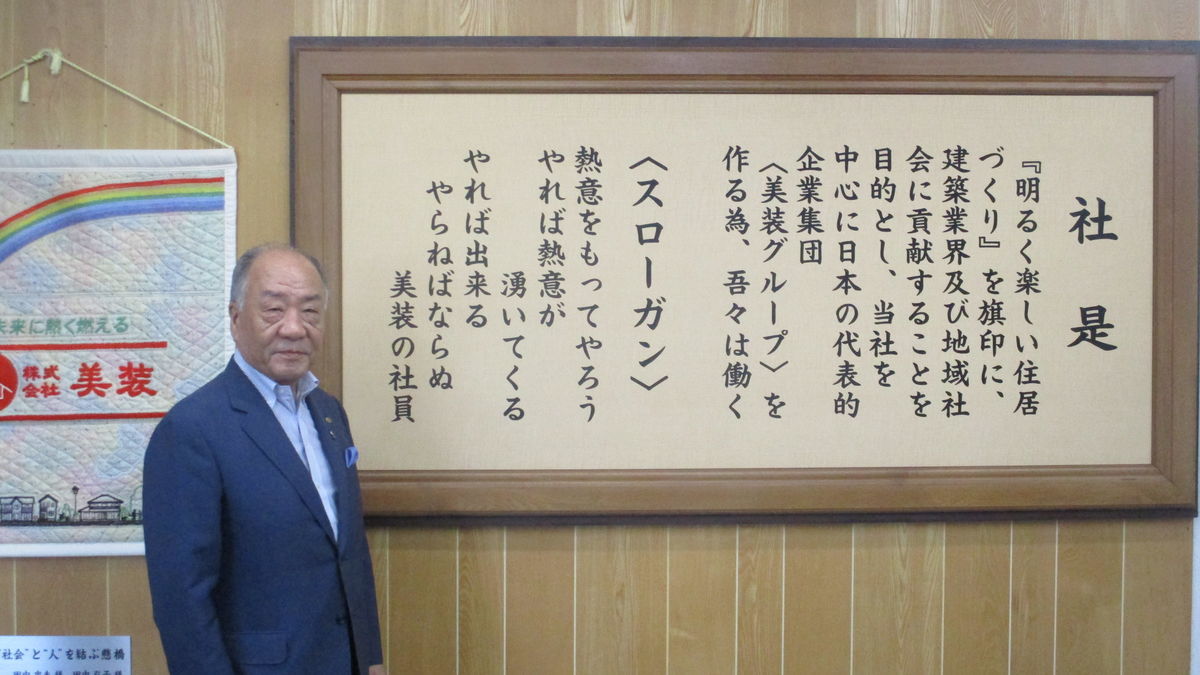 社是
『明るく楽しい住居
づくり』を旗印に、
建築業界及び地域社
会に貢献することを
目的とし、当社を
中心に日本の代表的
企業集団
〈美装グループ〉を
作る為、吾々は働く
〈スローガン〉
熱意をもってやろう
やれば熱意が
湧いてくる
やれば出来る
やらねばならぬ
美装の社員
未来に熱く燃える
株式
会社
美装
"社会"と"人"を結ぶ懸橋